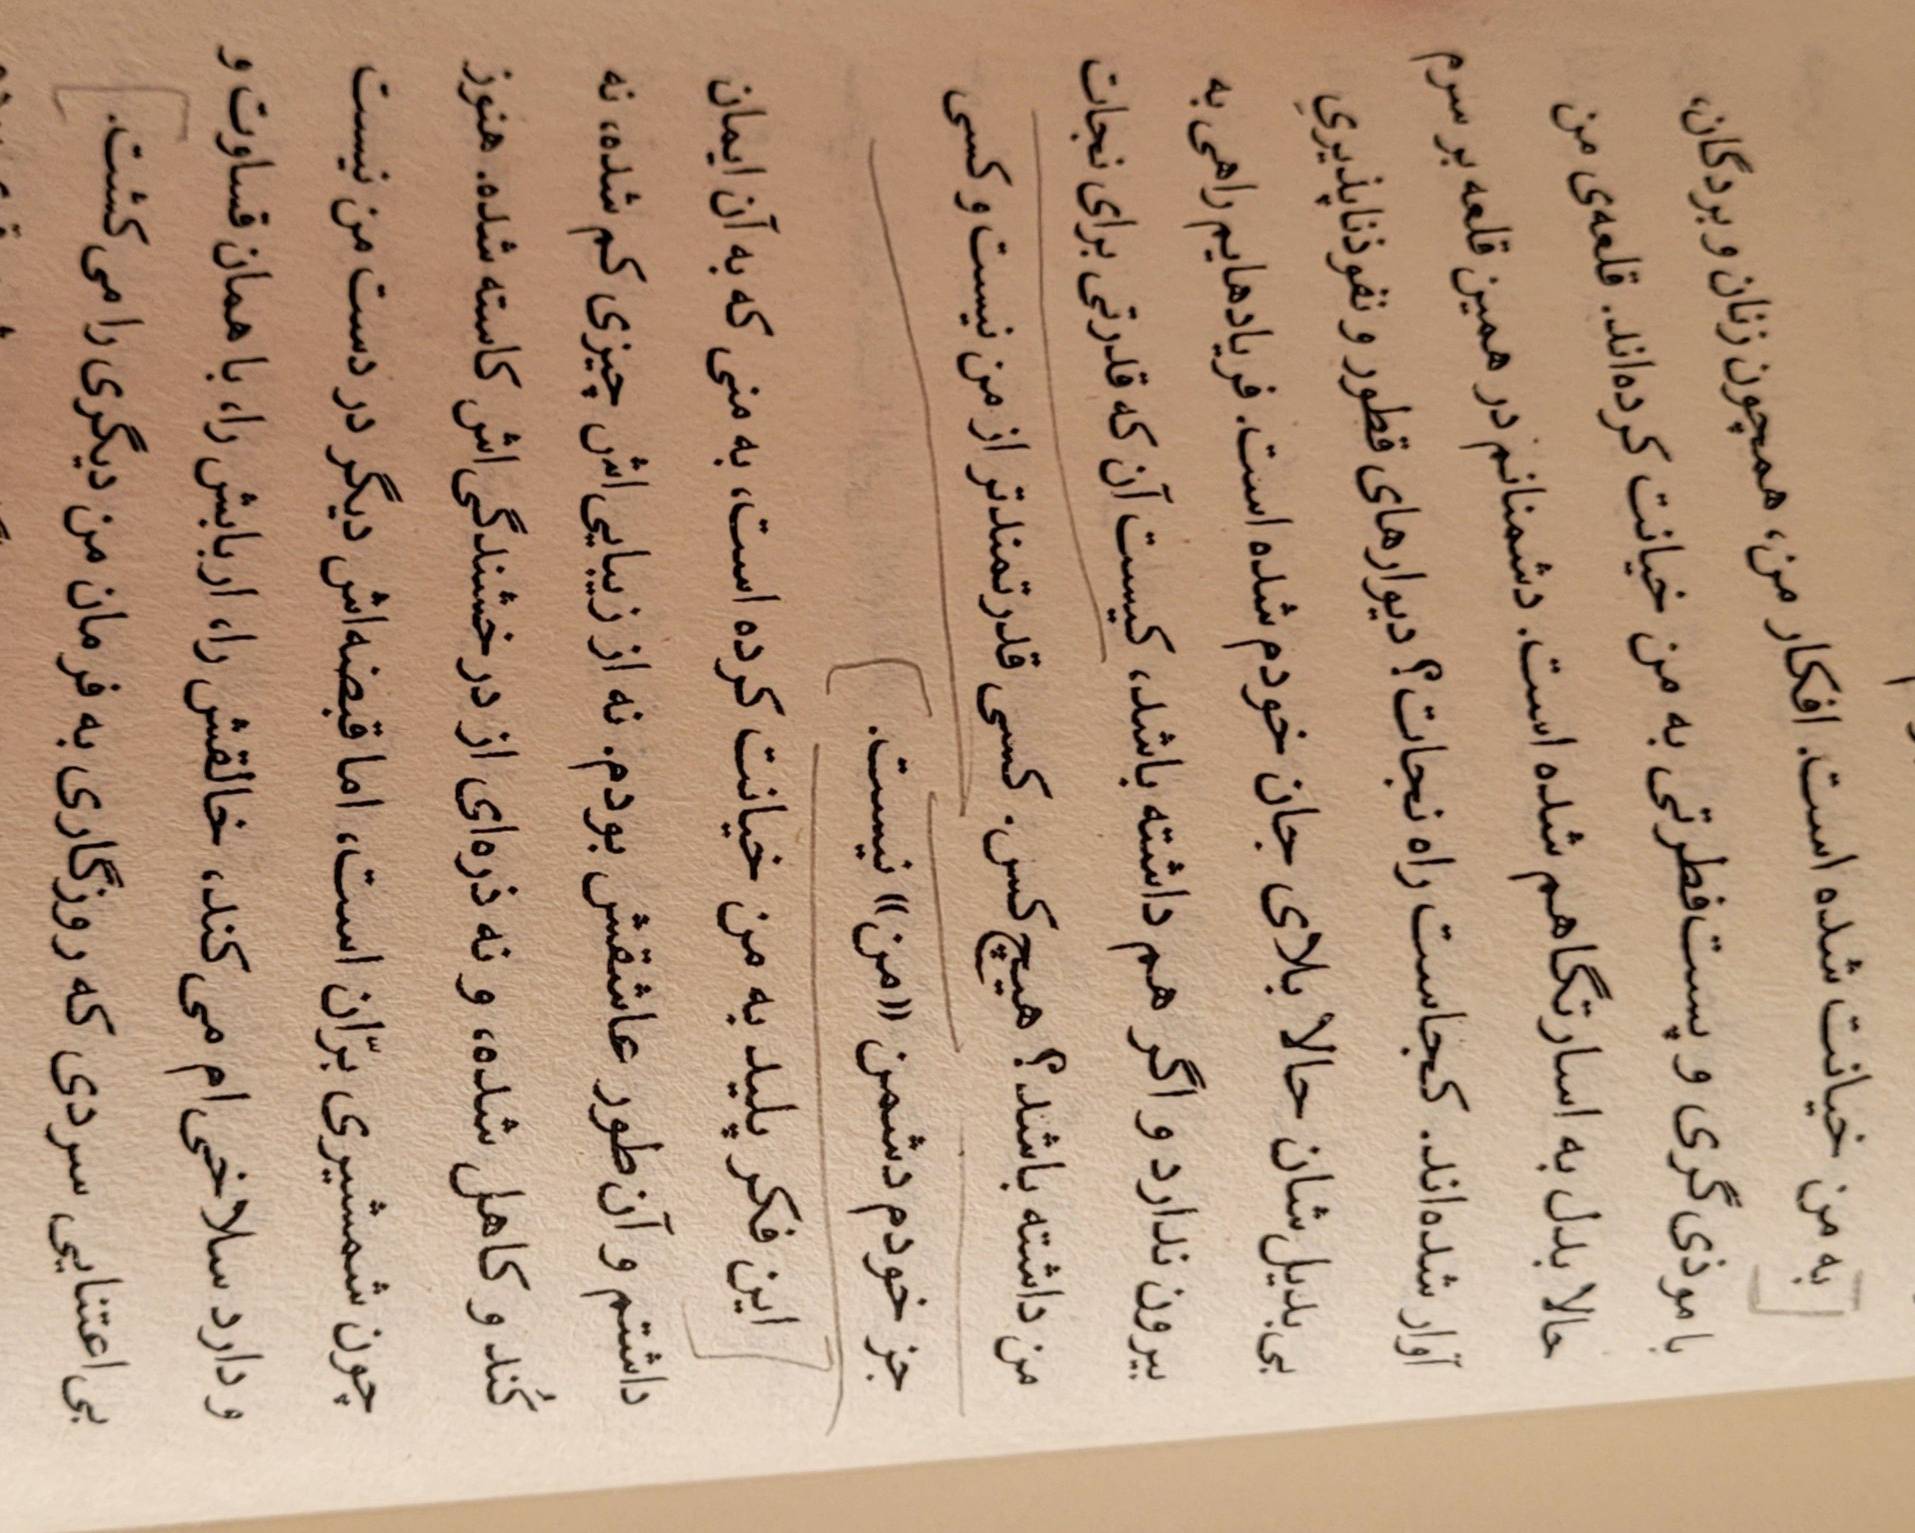 به من خیانت شده است. افکار من، همچون زنان و بردگان،
با موذی گری و پست فطرتی به من خیانت کرده‌اند. قلعه‌ی من
حالا بدل به اسارتگاهم شده است. دشمنانم در همین قلعه بر سرم
آوار شده‌اند. کجاست راه نجات؟ دیوارهای قطور و نفوذناپذیریِ
بی بدیل‌شان حالا بلای جان خودم شده است. فریادهایم راهی به
بیرون ندارد و اگر هم داشته باشد، کیست آن که قدرتی برای نجات
من داشته باشد؟ هیچ کس. کسی قدرتمندتر از من نیست و کسی
جز خودم دشمن «من» نیست.
این فکر پلید به من خیانت کرده است، به منی که به آن ایمان
داشتم و آن طور عاشقش بودم. نه از زیبایی‌اش چیزی کم شده، نه
کُند و کاهل شده، و نه ذره‌ای از درخشندگی‌اش کاسته شده. هنوز
چون شمشیری برّان است، اما قبضه‌اش دیگر در دست من نیست
و دارد سلاخی‌ام می کند، خالقش را، اربابش را، با همان قساوت و
بی اعتنایی سردی که روزگاری به فرمان من دیگری را می کشت.